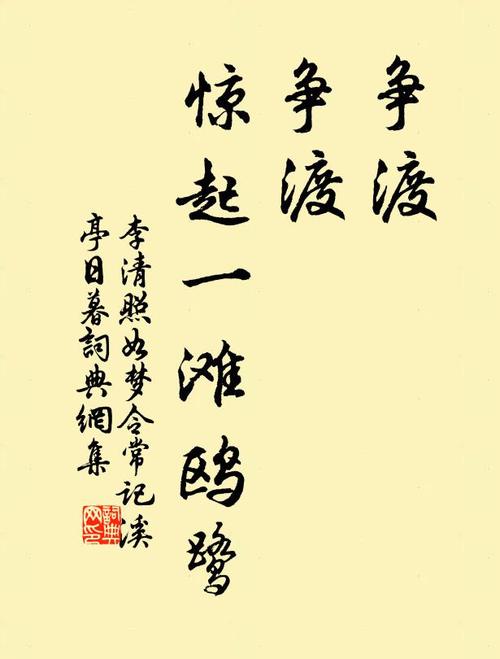 争渡
争渡
惊起一滩鸥鹭
李清照如梦令常记溪
亭日暮詞典網集
詞典網印